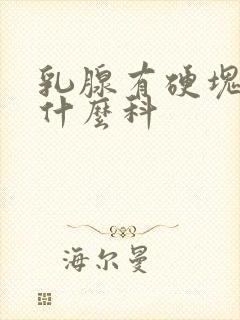 乳腺有硬块
什麼科
海尔曼